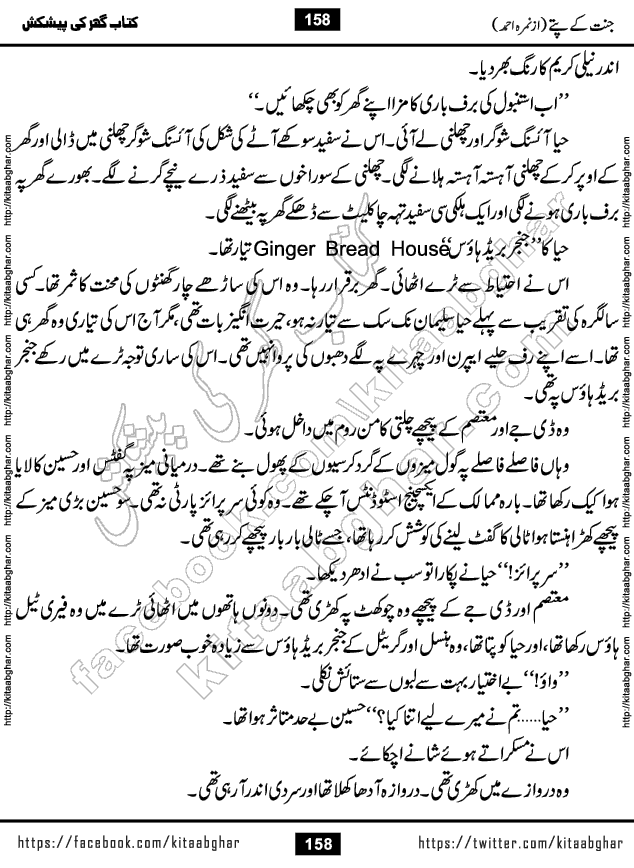 جنت کے پتے (از نمرہ احمد) 158 کتاب گھر کی پیشکش
اندر نیلی کریم کا رنگ بھر دیا۔
”اب استنبول کی برف باری کا مزا اپنے گھر کو بھی چکھائیں۔“
حیا آئسنگ شوگر اور چھلنی لے آئی۔ اس نے سفید سوکھے آٹے کی شکل کی آئسنگ شوگر چھلنی میں ڈالی اور گھر
کے اوپر کر کے چھلنی آہستہ آہستہ ہلانے لگی۔ چھلنی کے سوراخوں سے سفید ذرے نیچے گرنے لگے۔ بھورے گھر پہ
برف باری ہونے لگی اور ایک ہلکی سی سفید تہہ چاکلیٹ سے ڈھکے گھر پہ بیٹھنے لگی۔
حیا کا ”جنجر بریڈ ہاؤس“ Ginger Bread House تیار تھا۔
اس نے احتیاط سے ٹرے اٹھائی۔ گھر برقرار رہا۔ وہ اس کی ساڑھے چار گھنٹوں کی محنت کا ثمر تھا۔ کسی
سالگرہ کی تقریب سے پہلے حیا سلیمان نک سک سے تیار نہ ہو، حیرت انگیز بات تھی، مگر آج اس کی تیاری وہ گھر ہی
تھا۔ اسے اپنے رف حلیے، ایپرن اور چہرے پہ لگے دھبوں کی پروا نہیں تھی۔ اس کی ساری توجہ ٹرے میں رکھے جنجر
بریڈ ہاؤس پہ تھی۔
وہ ڈی جے اور معتصم کے پیچھے چلتی کامن روم میں داخل ہوئی۔
وہاں فاصلے فاصلے پہ گول میزوں کے گرد کرسیوں کے پھول بنے تھے۔ درمیانی میز پہ گفٹس اور حسین کا لایا
ہوا کیک رکھا تھا۔ بارہ ممالک کے ایکسچینج اسٹوڈنٹس آ چکے تھے۔ وہ کوئی سرپرائز پارٹی نہ تھی۔ سو حسین بڑی میز کے
پیچھے کھڑا ہنستا ہوا ٹالی کا گفٹ لینے کی کوشش کر رہا تھا، جسے ٹالی بار بار پیچھے کر رہی تھی۔
”سرپرائز!“ حیا نے پکارا تو سب نے ادھر دیکھا۔
معتصم اور ڈی جے کے پیچھے وہ چوکھٹ پہ کھڑی تھی۔ دونوں ہاتھوں میں اٹھائی ٹرے میں وہ فیری ٹیل
ہاؤس رکھا تھا، اور حیا کو پتا تھا، وہ ہنسل اور گریٹل کے جنجر بریڈ ہاؤس سے زیادہ خوب صورت تھا۔
”واؤ!“ بے اختیار بہت سے لبوں سے ستائش نکلی۔
”حیا...... تم نے میرے لیے اتنا کیا؟“ حسین بے حد متاثر ہوا تھا۔
اس نے مسکراتے ہوئے شانے اچکائے۔
وہ دروازے میں کھڑی تھی۔ دروازہ آدھا کھلا تھا اور سردی اندر آ رہی تھی۔
کتاب گھر کی پیشکش
facebook.com\kitaabghar
kitaabghar.com
http://kitaabghar.com http://kitaabghar.com http://kitaabghar.com http://kitaabghar.com http://kitaabghar.com http://kitaabghar.com
http://kitaabghar.com http://kitaabghar.com http://kitaabghar.com http://kitaabghar.com http://kitaabghar.com http://kitaabghar.com
https://facebook.com/kitaabghar 158 https://twitter.com/kitaabghar